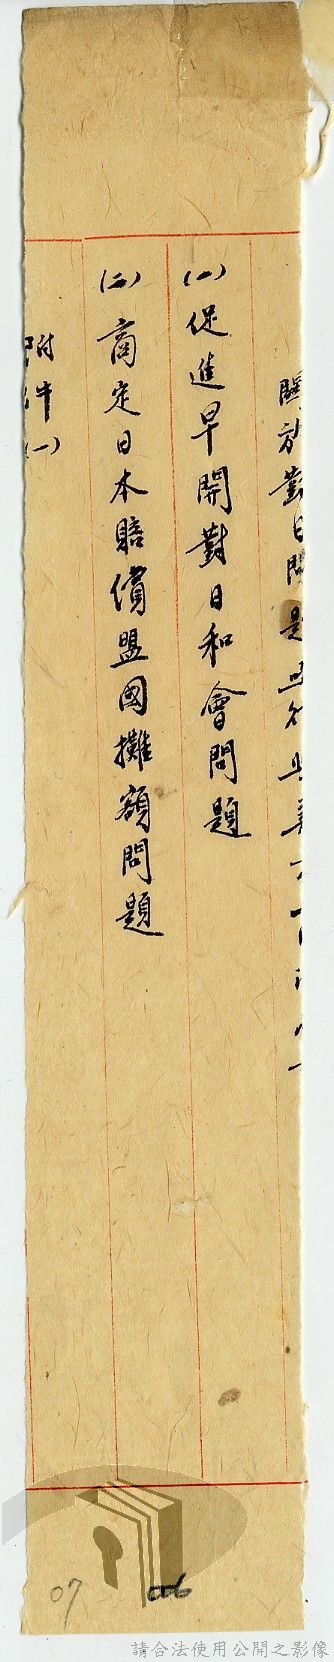 關於對日問題
(一)促進早開對日和會問題
(二)商定日本賠償盟國攤額問題
附件(一)
07
06
請合法使用公開之影像